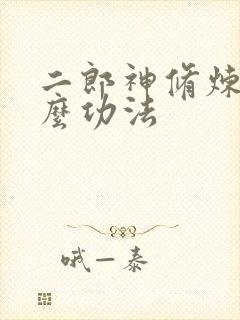 二郎神脩炼
麼功法
哦一泰